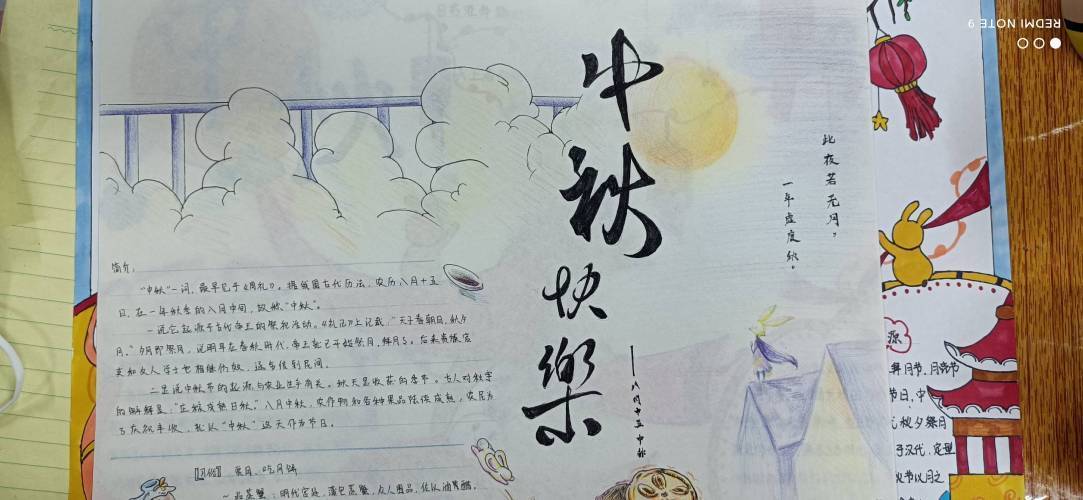 中秋快樂
——八月十五中秋
此夜若无月，
一年虚度秋。
简介：
"中秋"一词，最早见于《周礼》。据我国古代历法，农历八月十五
日，在一年秋季的八月中旬，故称"中秋"。
一说它起源于古代帝王的祭祀活动。《礼记》上记载："天子春朝日，秋夕
月。"夕月即祭月，说明早在春秋时代，帝王就已开始祭月、拜月了。后来贵族官
吏和文人学士也相继仿效，逐步传到民间。
二是说中秋节的起源与农业生产有关。秋天是收获的季节。古人对秋字
的解释是："庄稼成熟曰秋。"八月中秋，农作物和各种果品陆续成熟，农民为
了庆祝丰收，就以"中秋"这天作为节日。
【习俗】 赏月、吃月饼
品茶蟹：明代宫廷，蒲包蒸蟹，众人围品，佐以油
源
拜月节、月亮节
节日，中
秋夕祭月
于汉代，定型
秋节以月之
REDMI NOTE 9